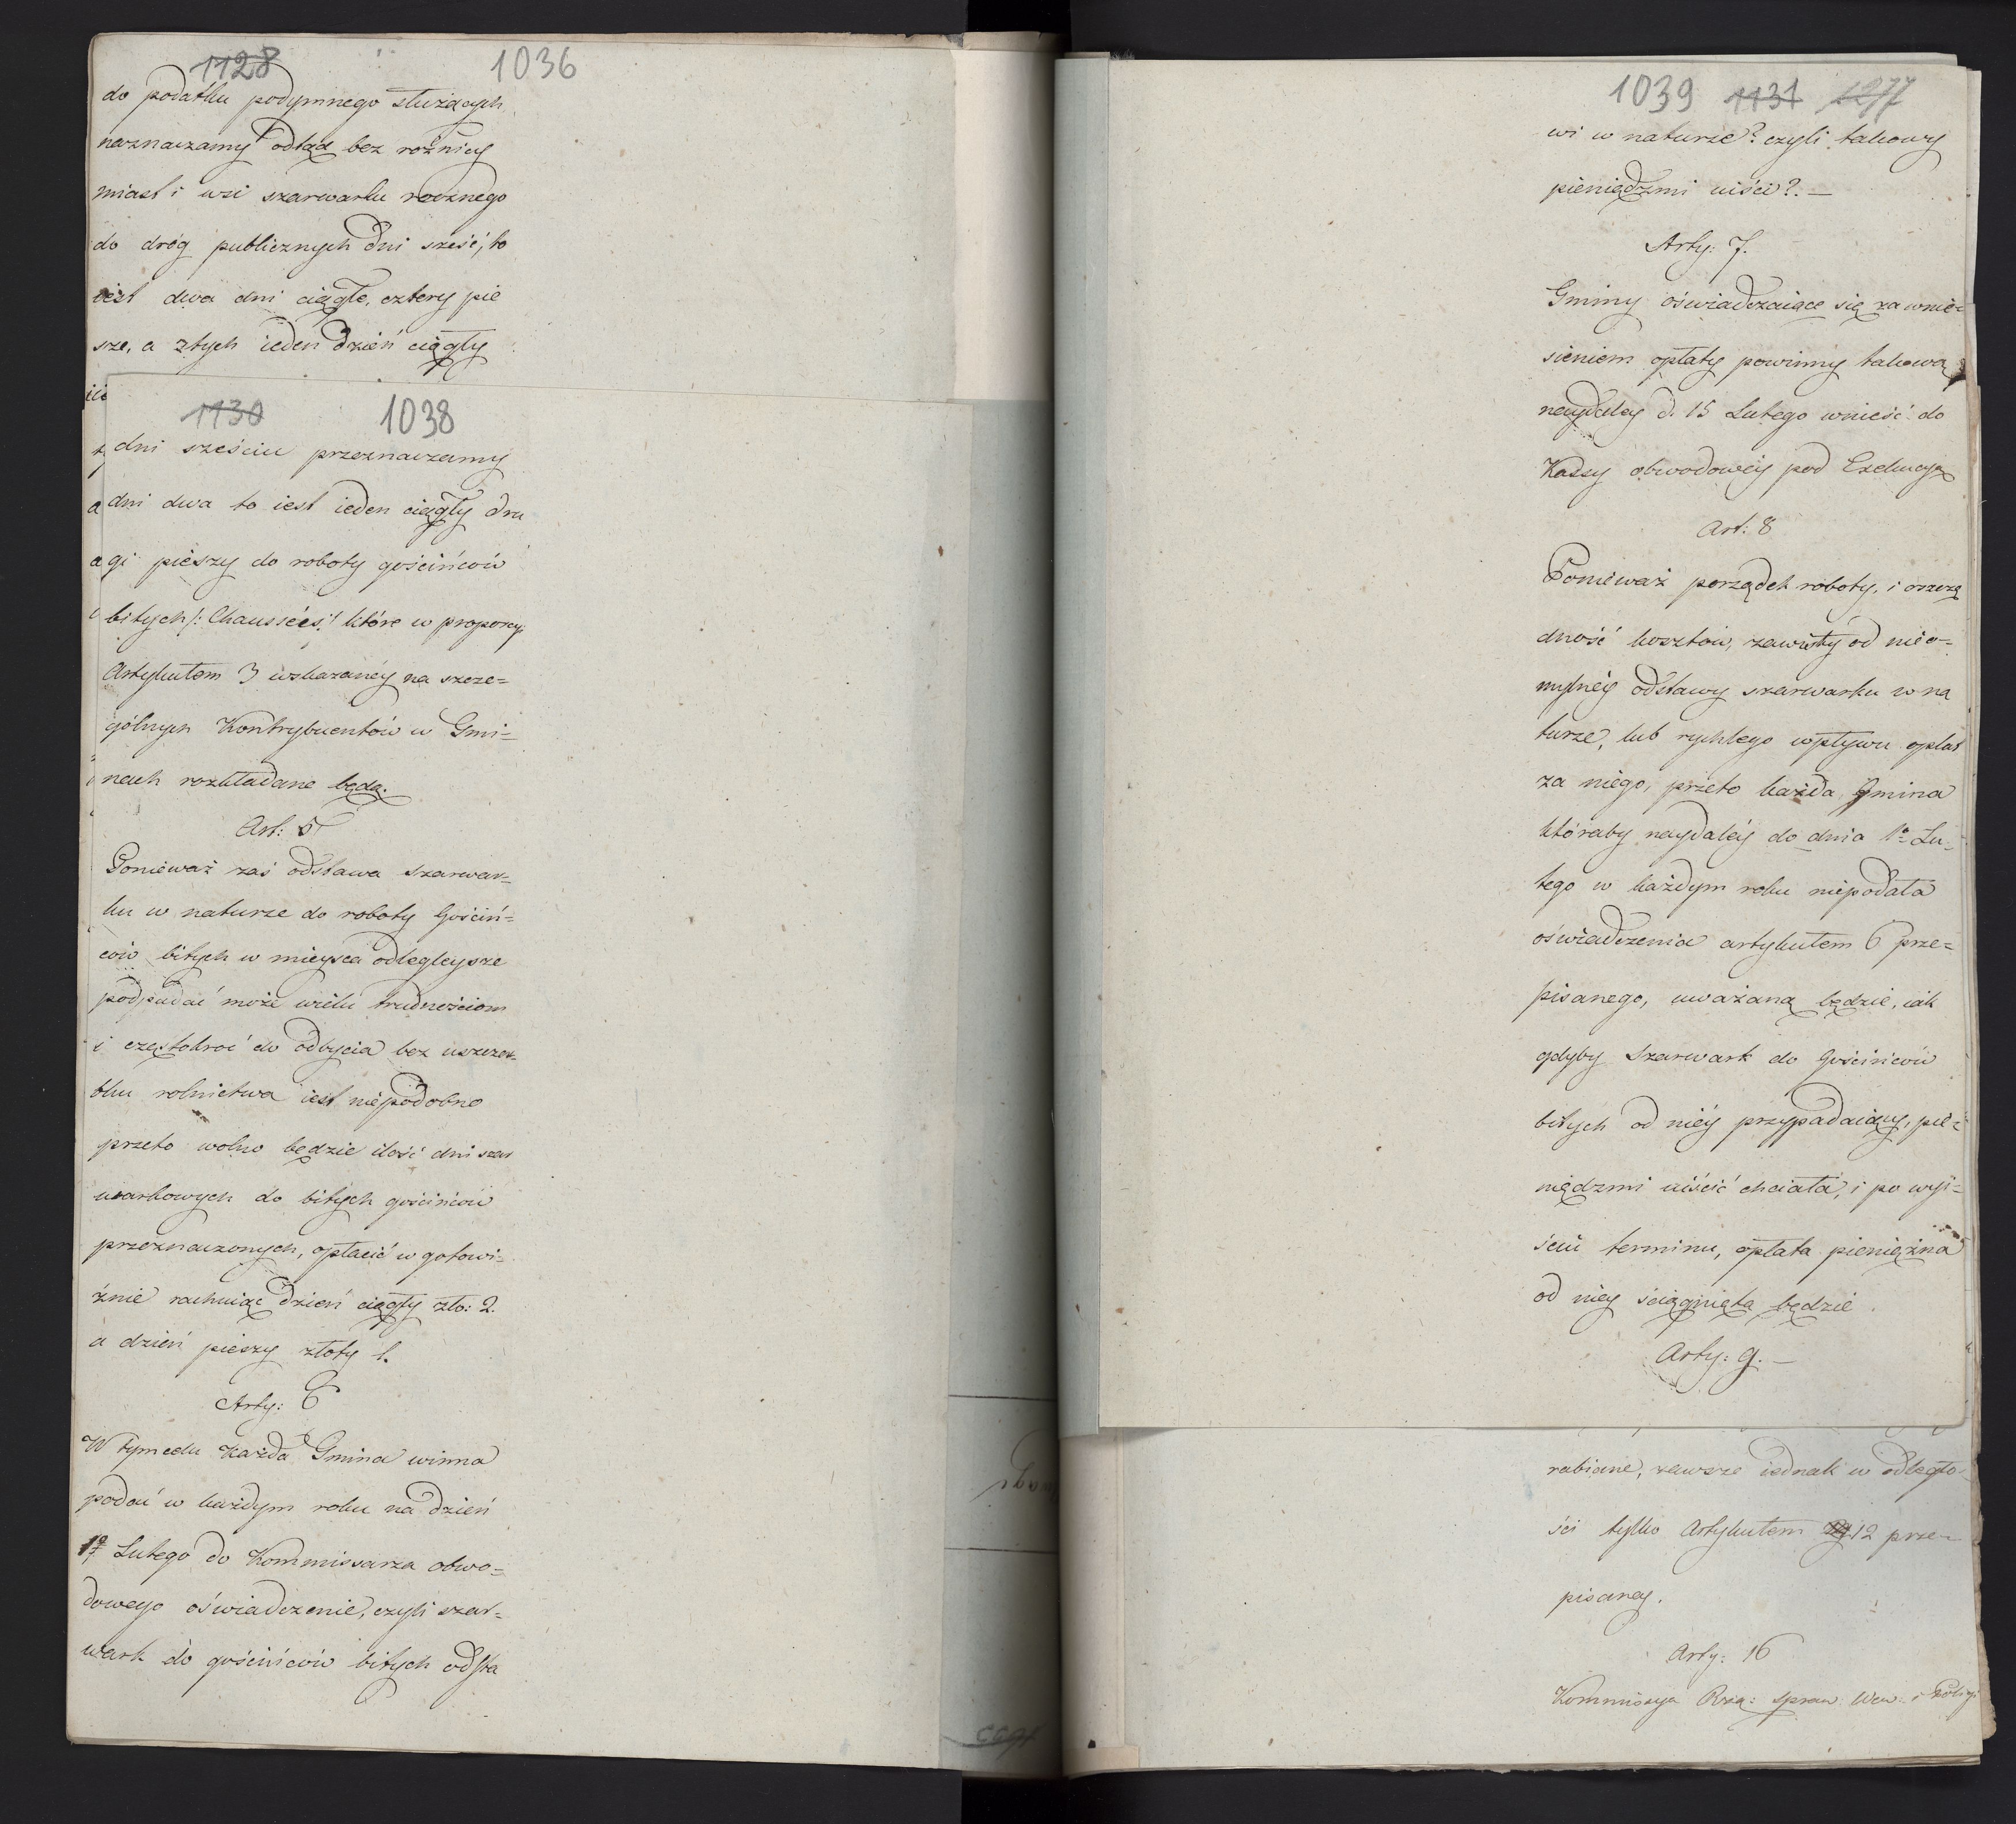 1128 1036
do podatku podymnego służących
naznaczamy odtąd bez różnicy
miast i wsi szarwarku rocznego
do dróg publicznych dni sześć, to
iest dwa dni ciągłe, cztery pie
sze, a z tych ieden dzień ciągły
1130 1038
dni sześciu przeznaczamy
dni dwa to iest ieden ciągły dru
gi pieszy do roboty gościńców
bitych /: Chaussées :/ które w proporcyi
Artykułem 3 wskazanéy na szcze=
gólnych Kontrybuentów w Gmi=
nach rozkładane będą.
Art: 5
Ponieważ zaś odstawa szarwar=
ku w naturze do roboty Gościń=
ców bitych w mieysca odlegleysze
podpadać może wielu trudnościom
i częstokroć do odbycia bez uszczer=
bku rolnictwa iest niepodobno
przeto wolno będzie ilość dni szar
warkowych do bitych gościńców
przeznaczonych, opłacić w gotowi=
źnie rachuiąc dzień ciągły zło: 2.
a dzień pieszy złoty 1.
Arty: 6
W tym celu Każda Gmina winna
podać w każdym roku na dzień
1º Lutego do Kommissarza obwo=
dowego oświadczenie, czyli szar=
wark do gościńców bitych odsta
1039 1131 1277
wi w naturze? czyli takowy
pieniądzmi uiści?. —
Arty: 7.
Gminy oświadczaiące się za wnie=
sieniem opłaty powinny takową
naydaley d. 15 Lutego wnieść do
Kassy obwodowéy pod Exekucyą
Art: 8
Ponieważ porządek roboty, i oszczę
dność kosztów, zawisły od nieo=
mylnéy odstawy szarwarku w na
turze, lub rychłego wpływu opłat
za niego, przeto każda Gmina
któraby naydaléy do dnia 1º Lu=
tego w każdym roku niepodała
oświadczenia artykułem 6 prze=
pisanego, uważaną będzie, iak
gdyby Szarwark do Gościńców
bitych od niéy przypadaiący, pie=
niądzmi uiścić chciała, i po wyi=
ściu terminu, opłata pieniężna
od niey ściągnięta będzie.
Arty: 9. —
rabiane, zawsze iednak w odległo
ści tylko Artykułem 12 prze=
pisaney.
Arty: 16
Kommissya Rzą: Spraw: Wew: i Policyi